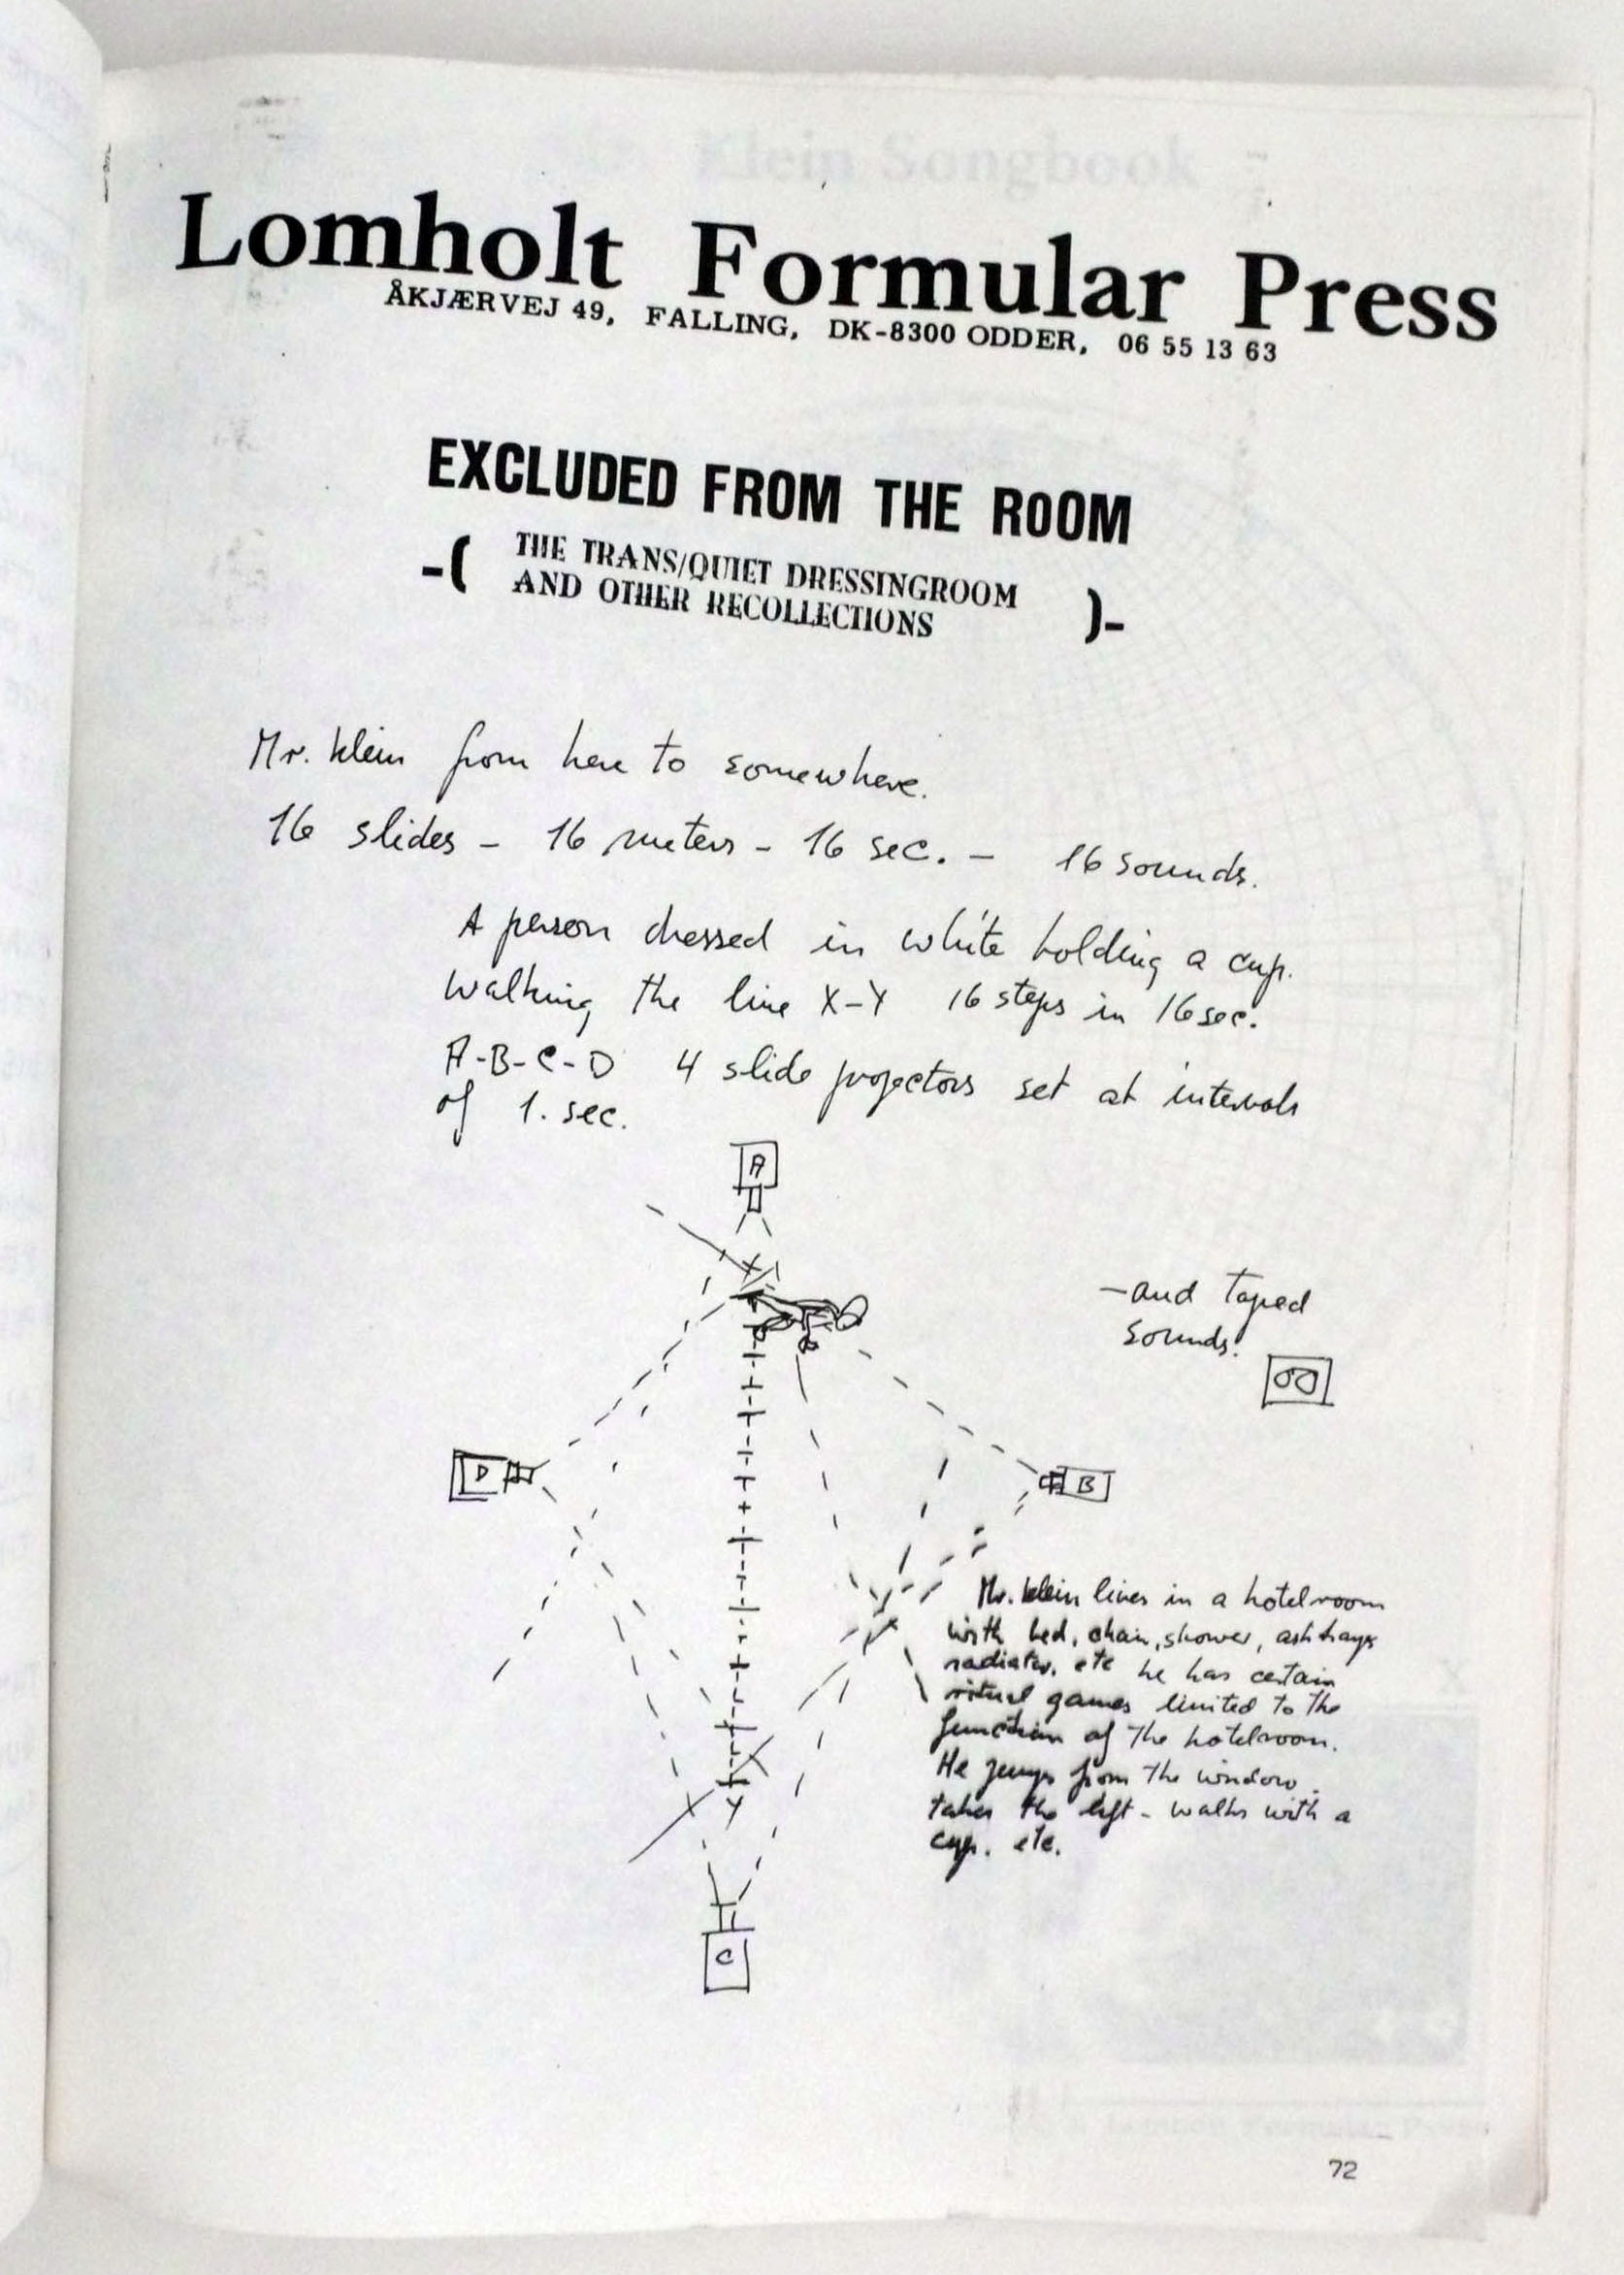 Klein Songbook
Lomholt Formular Press
ÅKJÆRVEJ 49, FALLING, DK-8300 ODDER, 06 55 13 63
EXCLUDED FROM THE ROOM
-( THE TRANS/QUIET DRESSINGROOM
AND OTHER RECOLLECTIONS )-
Mr. Klein from here to somewhere.
16 slides - 16 meters - 16 sec. - 16 sounds.
A person dressed in white holding a cup.
Walking the line X-Y 16 steps in 16 sec.
A-B-C-D 4 slide projectors set at intervals
of 1. sec.
A
X
- and taped
sounds.
D
B
Mr. Klein lives in a hotelroom
with bed, chair, shower, ashtrays
radiator, etc he has certain
ritual games limited to the
function of the hotelroom.
He jumps from the window.
takes the lift - walks with a
cup. etc.
Y
C
72